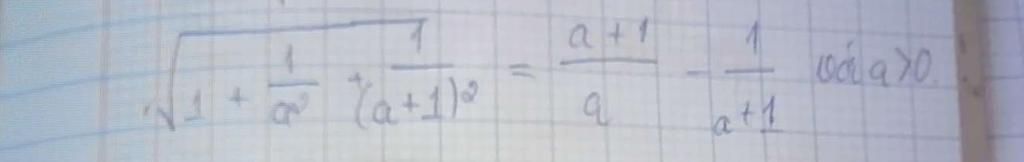 √(1 + 1/a² + 1/(a+1)²) = (a+1)/a - 1/(a+1) với a>0.